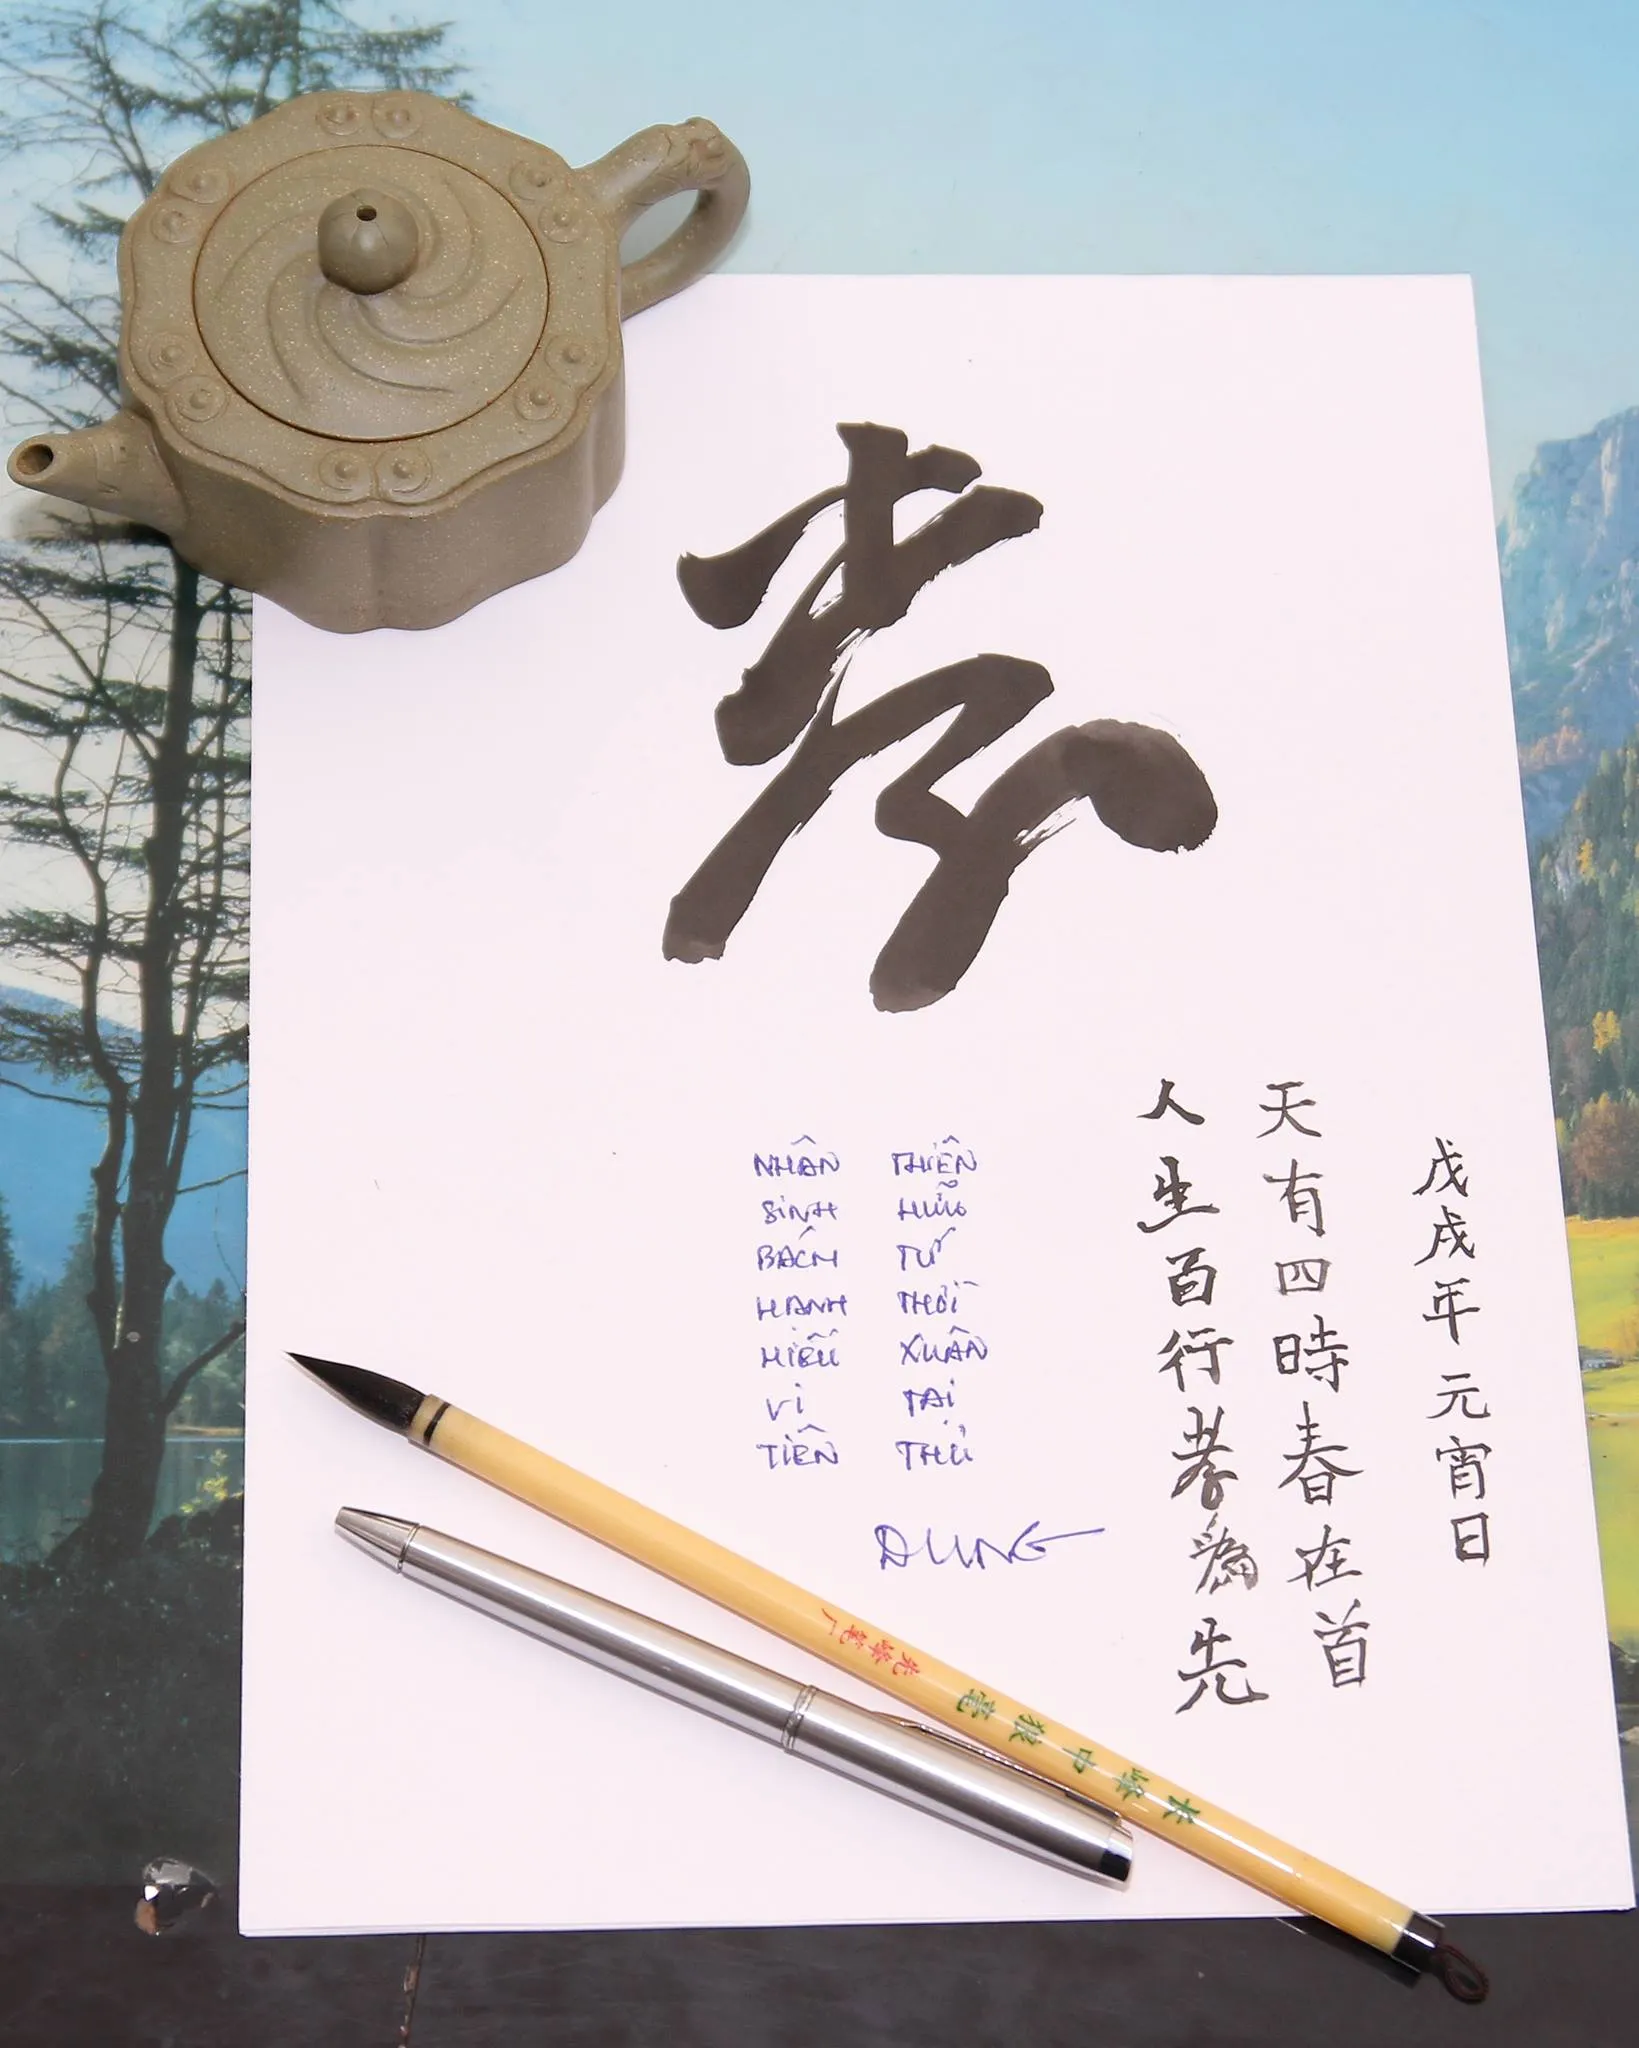 孝
戊戌年元宵日
天有四時春在首
人生百行孝為先
THIÊN HỮU TỨ THỜI XUÂN TẠI THỦ
NHÂN SINH BÁCH HẠNH HIẾU VI TIÊN
DUNG
长峰中狼毫
光峰筆厂